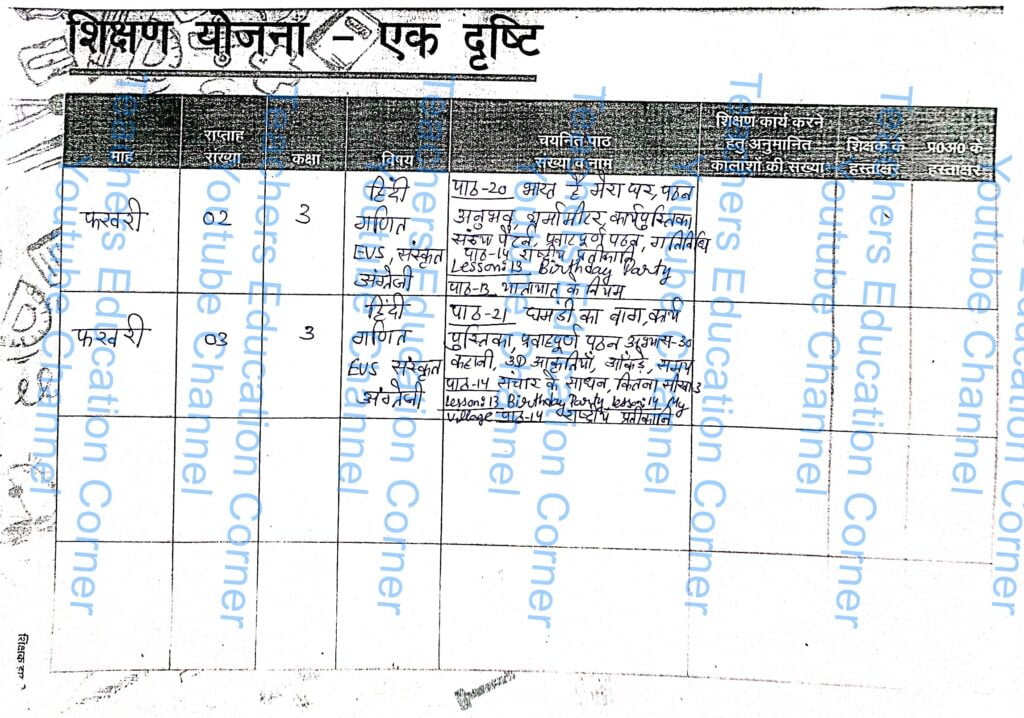 शिक्षण योजना – एक दृष्टि
माह
सप्ताह संख्या
कक्षा
विषय
चयनित पाठ संख्या व नाम
शिक्षण कार्य करने हेतु अनुमानित कालांशों की संख्या
शिक्षक के हस्ताक्षर
प्र0अ0 के हस्ताक्षर
फरवरी
02
3
हिंदी
गणित
EVS, संस्कृत
अंग्रेजी
पाठ-20 भारत है मेरा घर, पठन
अनुभव, थर्मामीटर, कार्यपुस्तिका
संख्या पैटर्न, प्रवाहपूर्ण पठन, गतिविधि
पाठ-14 राष्ट्रीय प्रतीकानि
Lesson:13 Birthday Party
पाठ-13 यातायात के नियम
फरवरी
03
3
हिंदी
गणित
EVS संस्कृत
अंग्रेजी
पाठ-21 घमंडी का बाग, कार्य
पुस्तिका, प्रवाहपूर्ण पठन अभ्यास-30
कहानी, 3D आकृतियाँ, आँकड़े, समय
पाठ-14 संचार के साधन, कितना सीखा 3
Lesson:13 Birthday Party, Lesson:14 My
village पाठ-14 राष्ट्रीय प्रतीकानि
Teachers Education Corner
Youtube Channel
Teachers Education Corner
Youtube Channel
Teachers Education Corner
Youtube Channel
Teachers Education Corner
Youtube Channel